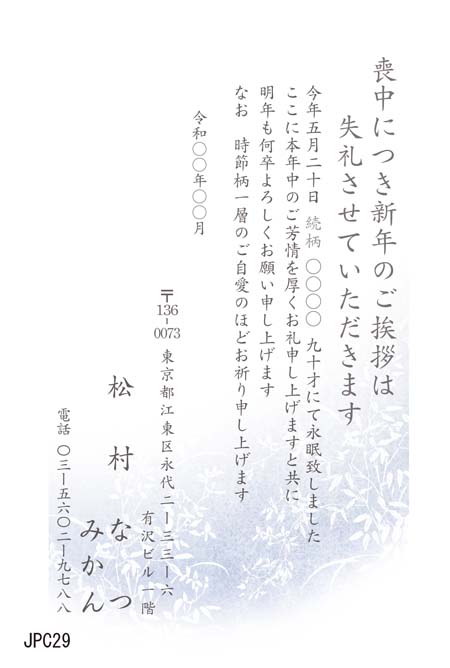 喪中につき新年のご挨拶は
失礼させていただきます
今年五月二十日 続柄 〇〇〇〇 九十才にて永眠致しました
ここに本年中のご芳情を厚くお礼申し上げますと共に
明年も何卒よろしくお願い申し上げます
なお 時節柄一層のご自愛のほどお祈り申し上げます
令和〇〇年〇〇月
〒136-0073
東京都江東区永代二ー三三ー六
有沢ビル一階
松村 なつ
みかん
電話 〇三ー五六〇二ー九七八八
JPC29